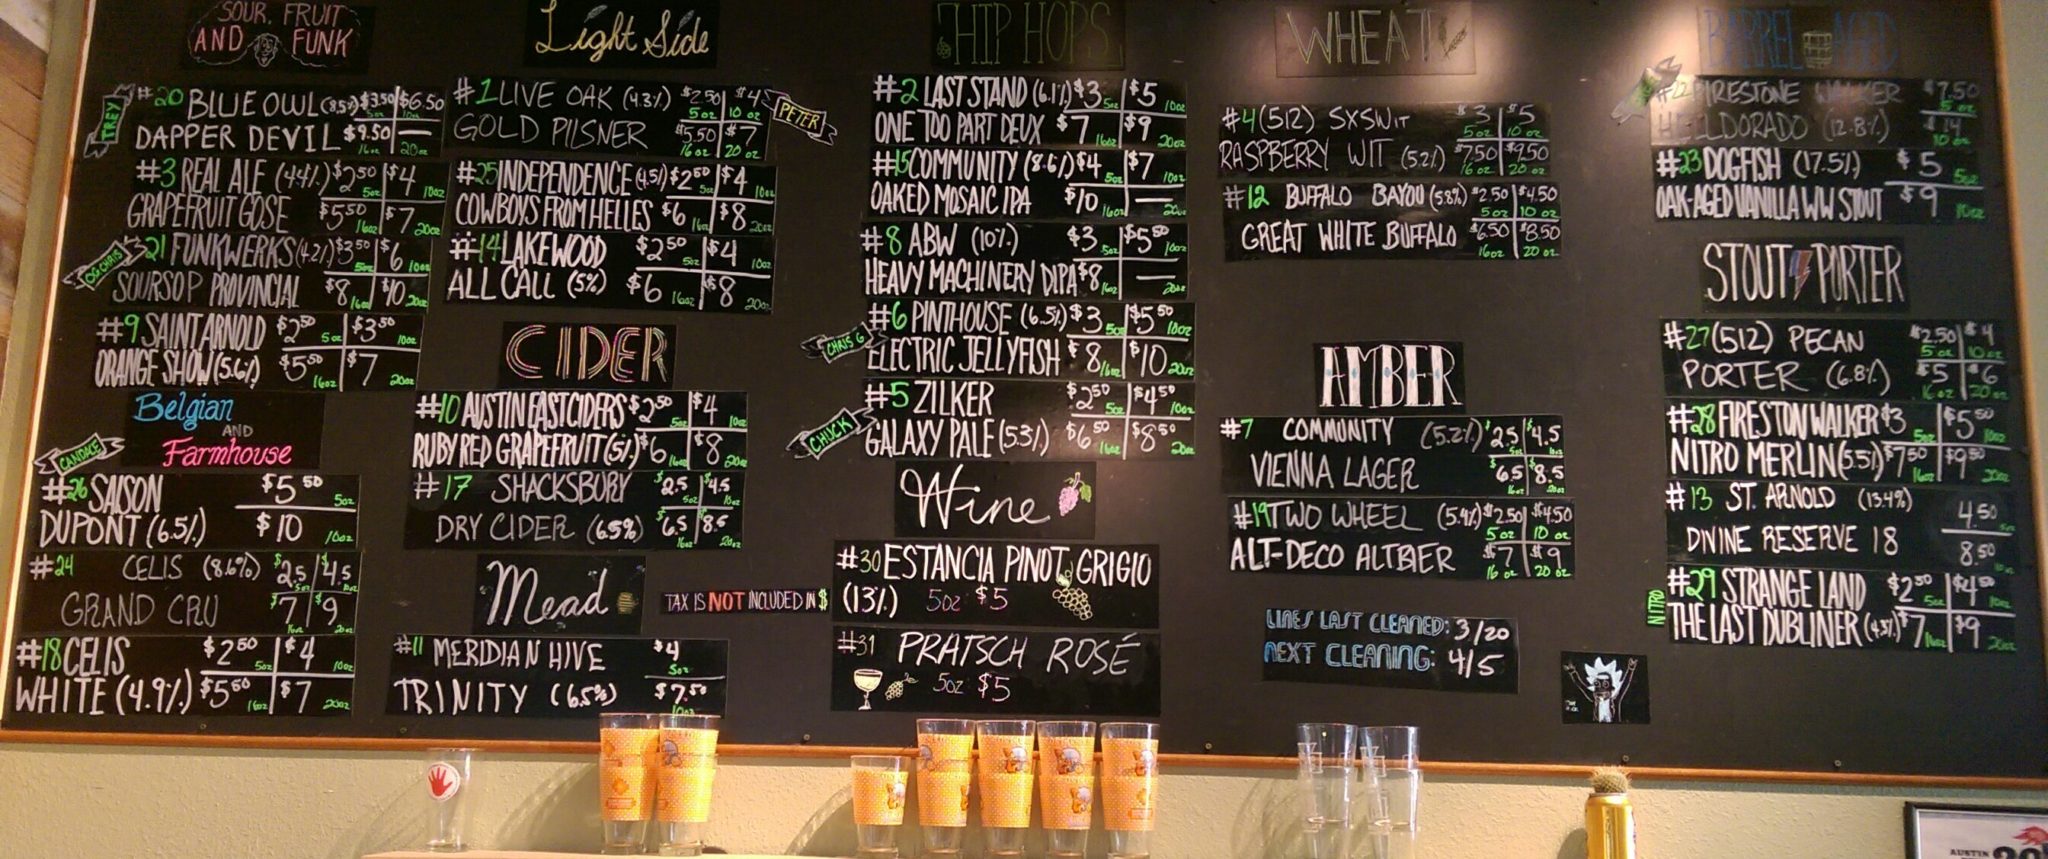 SOUR, FRUIT
AND FUNK
TREY
#20 BLUE OWL (8.5%) $3.50 5oz $6.50 10oz
DAPPER DEVIL $9.50 16oz — 20oz
#3 REAL ALE (4.4%) $2.50 5oz $4 10oz
GRAPEFRUIT GOSE $5.50 16oz $7 20oz
OG CHRIS
#21 FUNKWERKS (4.2%) $3.50 5oz $6 10oz
SOURSOP PROVINCIAL $8 16oz $10 20oz
#9 SAINT ARNOLD $2.50 5oz $3.50 10oz
ORANGE SHOW (5.6%) $5.50 16oz $7 20oz
Belgian
AND
Farmhouse
CANDACE
#26 SAISON $5.50 5oz
DUPONT (6.5%) $10 10oz
#24 CELIS (8.6%) $2.5 5oz $4.5 10oz
GRAND CRU $7 16oz $9 20oz
#18 CELIS $2.50 5oz $4 10oz
WHITE (4.9%) $5.50 16oz $7 20oz
Light Side
#1 LIVE OAK (4.3%) $2.50 5 oz $4 10 oz
GOLD PILSNER $5.50 16 oz $7 20 oz
PETER
#25 INDEPENDENCE (4.5%) $2.50 5oz $4 10oz
COWBOYS FROM HELLES $6 16oz $8 20oz
#14 LAKEWOOD $2.50 5oz $4 10oz
ALL CALL (5%) $6 16oz $8 20oz
CIDER
#10 AUSTIN EASTCIDERS $2.50 5oz $4 10oz
RUBY RED GRAPEFRUIT (5%) $6 16oz $8 20oz
#17 SHACKSBURY $2.5 5oz $4.5 10oz
DRY CIDER (6.5%) $6.5 16oz $8.5 20oz
Mead
#11 MERIDIAN HIVE $4 5oz
TRINITY (6.5%) $7.50 10oz
TAX IS NOT INCLUDED IN $
HIP HOPS
#2 LAST STAND (6.1%) $3 5oz $5 10oz
ONE TOO PART DEUX $7 16oz $9 20oz
#15 COMMUNITY (8.6%) $4 5oz $7 10oz
OAKED MOSAIC IPA $10 16oz — 20oz
#8 ABW (10%) $3 5oz $5.50 10oz
HEAVY MACHINERY DIPA $8 16oz — 20oz
#6 PINTHOUSE (6.5%) $3 5oz $5.50 10oz
CHRIS G
ELECTRIC JELLYFISH $8 16oz $10 20oz
#5 ZILKER $2.50 5oz $4.50 10oz
CHUCK
GALAXY PALE (5.3%) $6.50 16oz $8.50 20oz
Wine
#30 ESTANCIA PINOT GRIGIO
(13%) 5oz $5
#31 PRATSCH ROSÉ
5oz $5
WHEAT
#4 (512) SXSWIT $3 5 oz $5 10 oz
RASPBERRY WIT (5.2%) $7.50 16 oz $9.50 20 oz
#12 BUFFALO BAYOU (5.8%) $2.50 5 oz $4.50 10 oz
GREAT WHITE BUFFALO $6.50 16oz $8.50 20 oz
AMBER
#7 COMMUNITY (5.2%) $2.5 5oz $4.5 10oz
VIENNA LAGER $6.5 16oz $8.5 20oz
#19 TWO WHEEL (5.4%) $2.50 5 oz $4.50 10 oz
ALT-DECO ALTBIER $7 16 oz $9 20 oz
LINES LAST CLEANED: 3/20
NEXT CLEANING: 4/5
BARREL AGED
#22 FIRESTONE WALKER $7.50 5 oz
HELLDORADO (12.8%) $14 10 oz
#23 DOGFISH (17.5%) $5 5oz
OAK-AGED VANILLA WW STOUT $9 10oz
STOUT PORTER
#27 (512) PECAN $2.50 5 oz $4 10 oz
PORTER (6.8%) $5 16 oz $6 20 oz
#28 FIRESTON WALKER $3 5oz $5.50 10oz
NITRO MERLIN (5.5%) $7.50 16oz $9.50 20oz
#13 ST. ARNOLD (13.4%) 4.50 5oz
DIVINE RESERVE 18 8.50 10oz
NITRO
#29 STRANGE LAND $2.50 5oz $4.50 10oz
THE LAST DUBLINER (4.3%) $7 16oz $9 20oz
AUSTIN